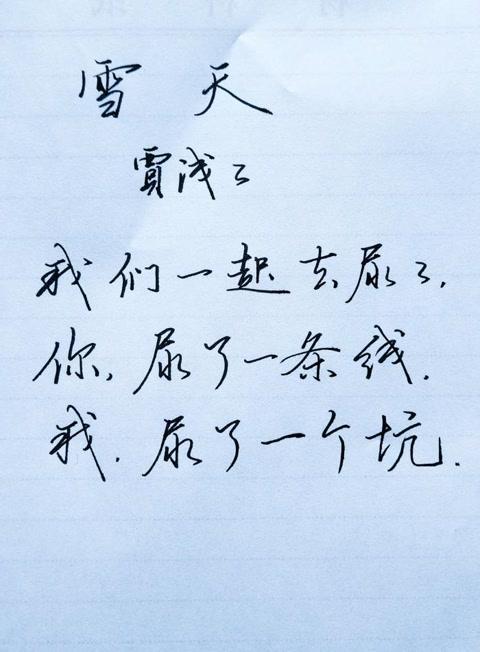 雪 天
賈浅々
我们一起去尿々，
你，尿了一条线．
我．尿了一个坑．